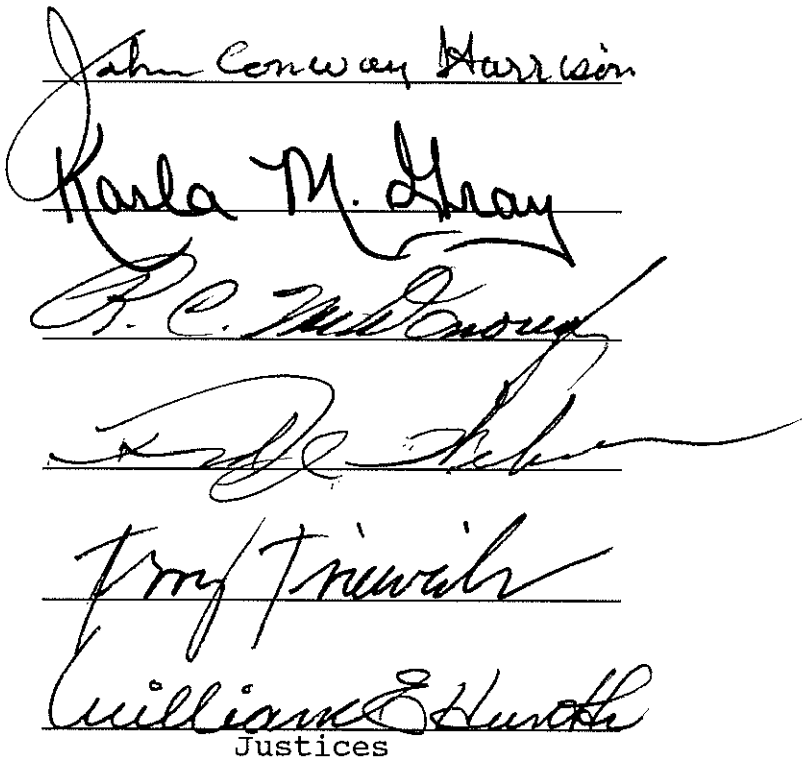 John Conway Harrison
Karla M. Gray
R. C. McDonough
Terry Trieweiler
William E Hunt
Justices